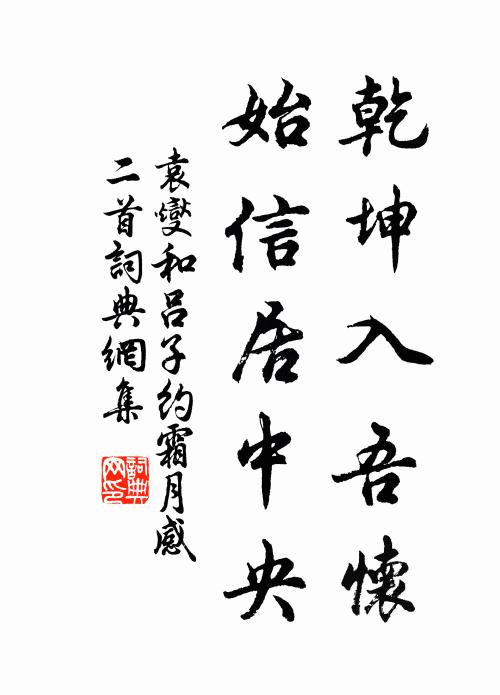 乾坤入吾懷
始信居中央
袁燮和吕子約霜月感
二首詞典網集
詞典
网印